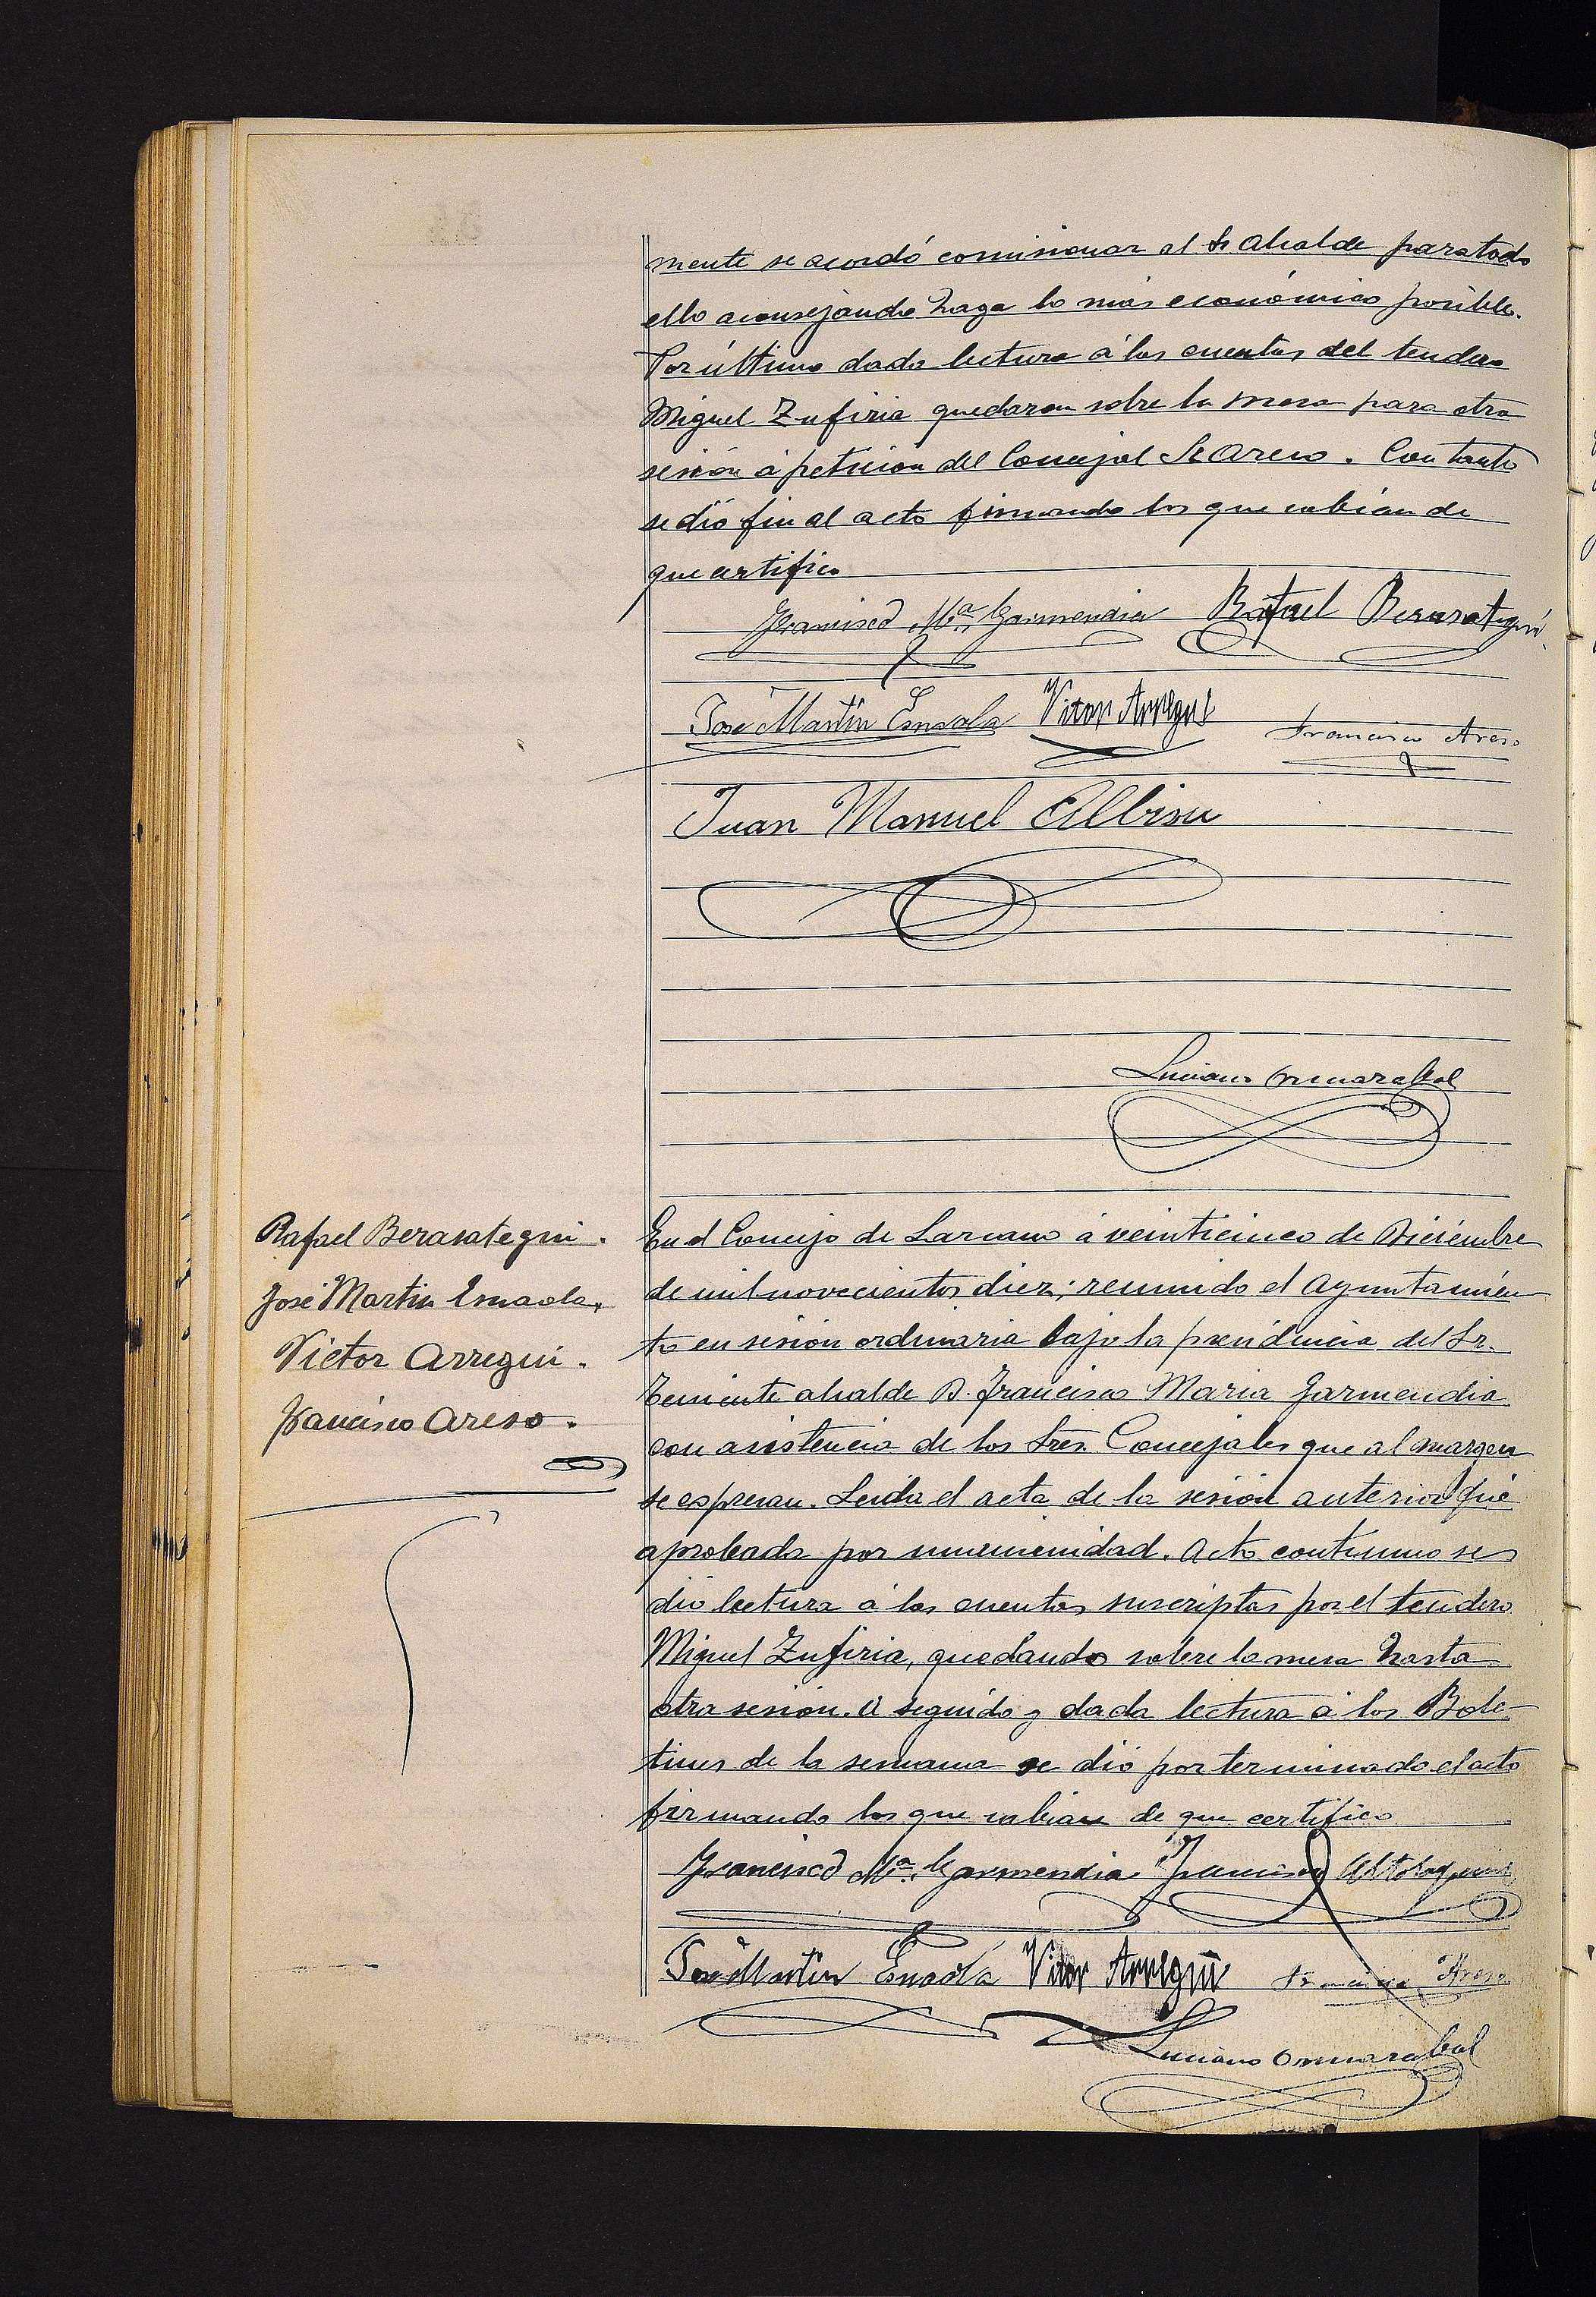 mente se acordó comisionar al Sr Alcalde para todo
ello aconsejando haga lo más económico posible.
Por último dada lectura á las cuentas del tendero
Miguel Zufiria quedaron sobre la mesa para otra
sesión á petición del Concejal Sr Areso. Con tanto
se dió fin al acto firmando los que sabian de
que certifico
Francisco Mª Garmendia Rafael Berasategui
José Martin Esnaola Vitor Arregui Francisco Areso
Juan Manuel Albisu
Luciano Ormazabal
Rafael Berasategui.
José Martin Esnaola.
Victor Arregui.
Francisco Areso.
En el Concejo de Lazcano á veinticinco de Diciembre
de mil novecientos diez; reunido el Ayuntamien-
to en sesión ordinaria bajo la presidencia del Sr.
Teniente alcalde D. Francisco Maria Garmendia
con asistencia de los Sres. Concejales que al margen
se espresan. Leida el acta de la sesión anterior fué
aprobada por unanimidad. Acto continuo se
dió lectura á las cuentas suscriptas por el tendero
Miguel Zufiria, quedando sobre la mesa hasta
otra sesión. A seguido y dada lectura á los Bole-
tines de la semana se dió por terminado el acto
firmando los que sabian de que certifico
Francisco Mª Garmendia Francisco
José Martin Esnaola Vitor Arregui Francisco Areso
Luciano Ormazabal